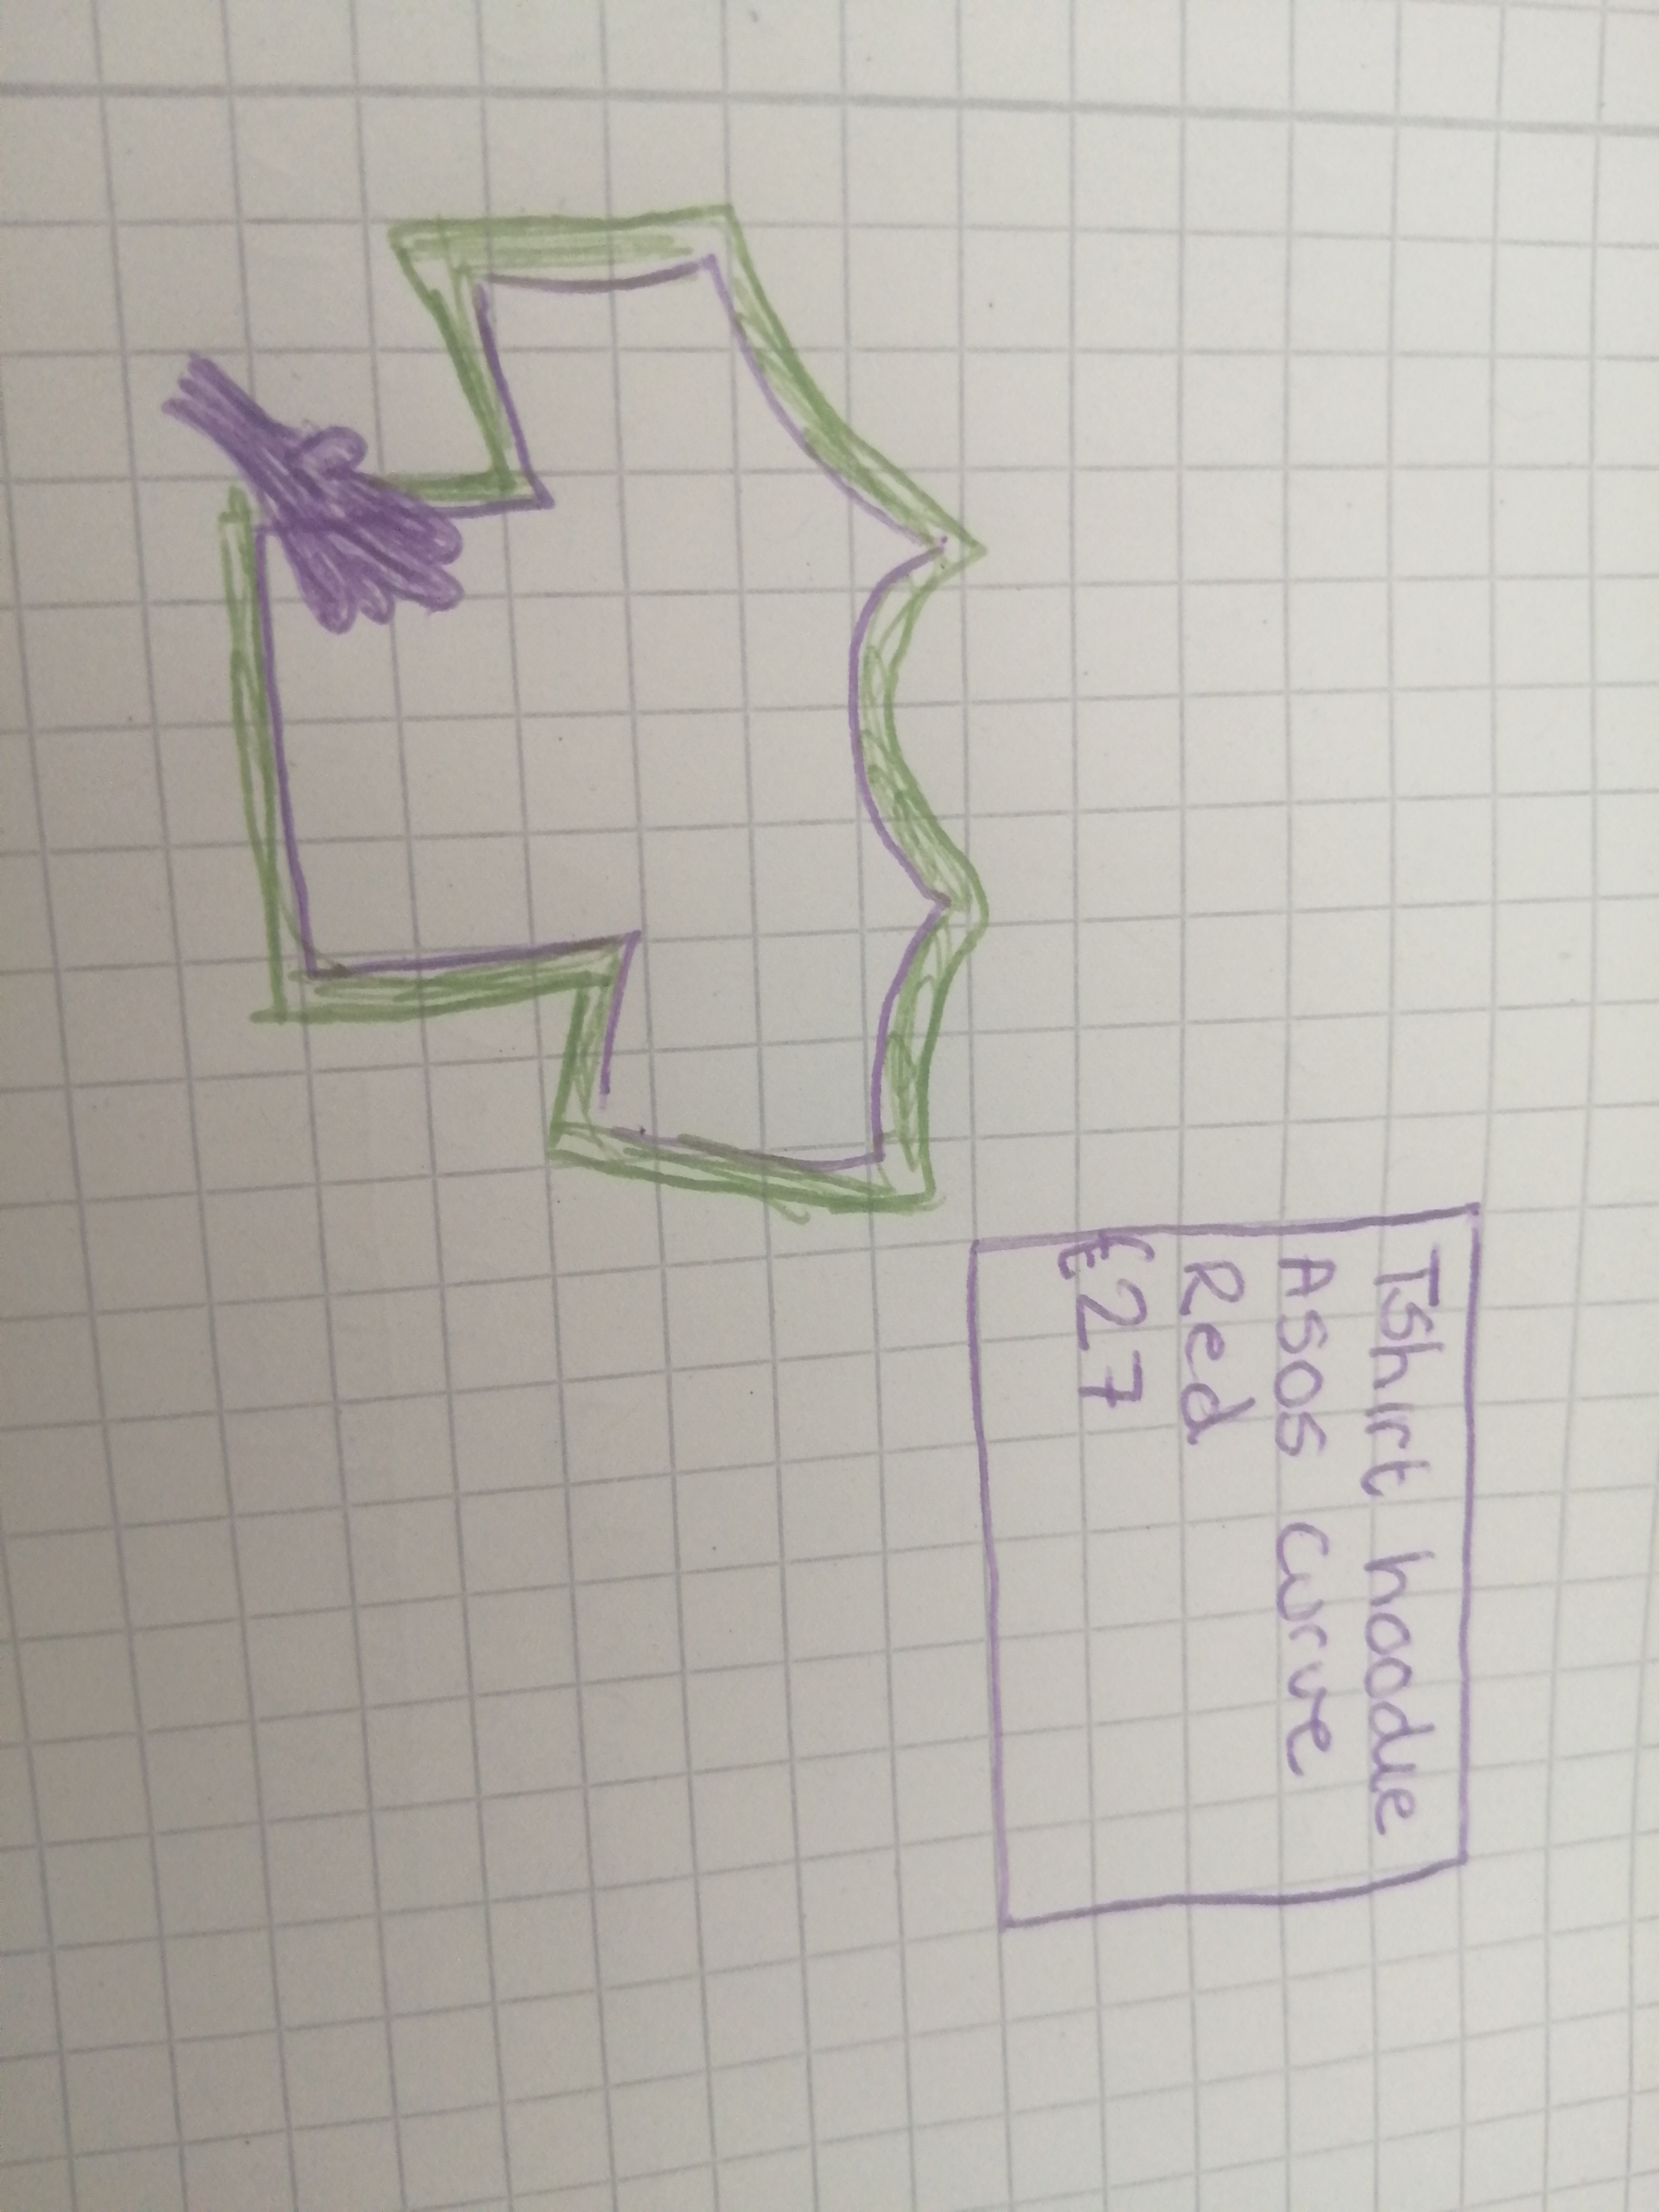 Tshirt hoodie
Asos curve
Red
£27